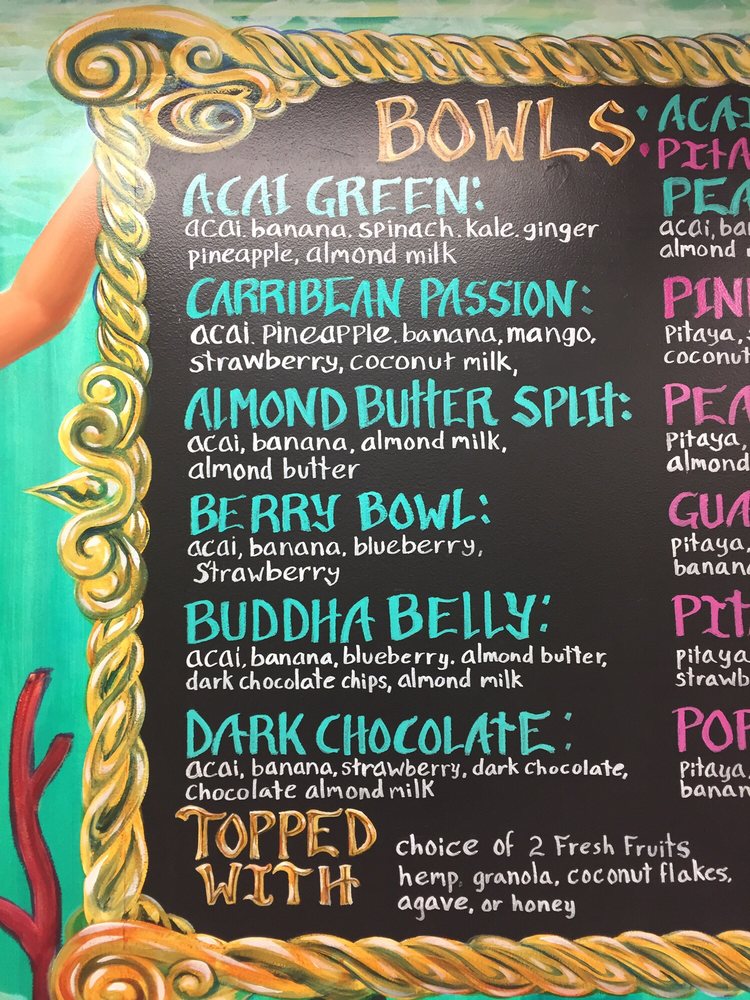 BOWLS:
ACAI GREEN:
acai, banana, spinach, kale, ginger
pineapple, almond milk
CARRIBEAN PASSION:
acai, pineapple, banana, mango,
strawberry, coconut milk,
ALMOND BUTTER SPLIT:
acai, banana, almond milk,
almond butter
BERRY BOWL:
acai, banana, blueberry,
strawberry
BUDDHA BELLY:
acai, banana, blueberry, almond butter,
dark chocolate chips, almond milk
DARK CHOCOLATE:
acai, banana, strawberry, dark chocolate,
chocolate almond milk
TOPPED
WITH
choice of 2 Fresh Fruits
hemp, granola, coconut flakes,
agave, or honey
acai,
almond
pitaya,
coconut
pitaya,
almond
pitaya,
pitaya
pitaya,